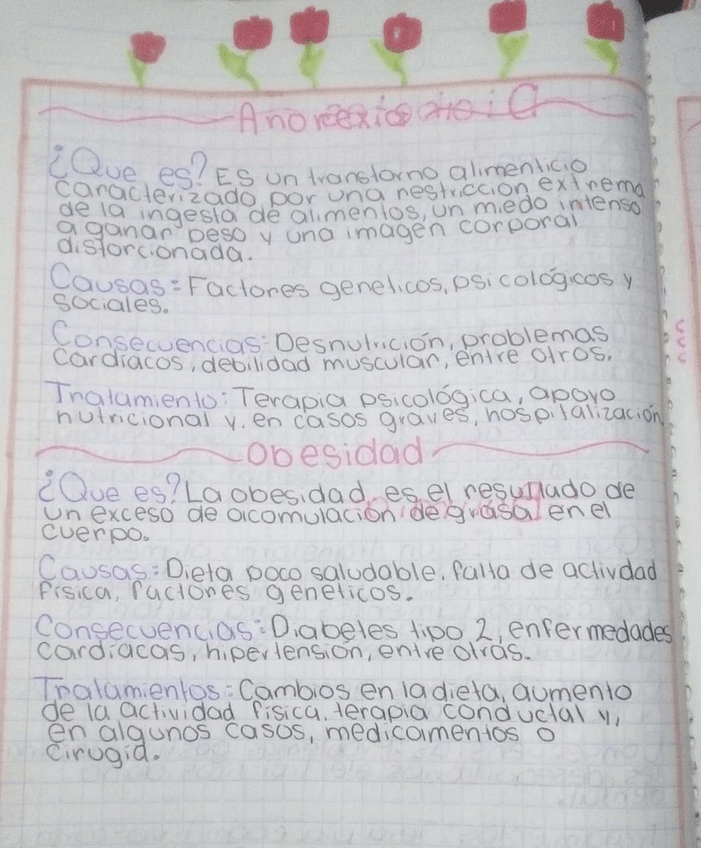 Anorexia
¿Que es? Es un transtorno alimenticio
caracterizado por una restriccion extrema
de la ingesta de alimentos, un miedo intenso
a ganar peso y una imagen corporal
distorcionada.
Causas: Factores geneticos, psicológicos y
sociales.
Consecuencias: Desnutrición, problemas
cardiacos, debilidad muscular, entre otros.
Tratamiento: Terapia psicológica, apoyo
nutricional y, en casos graves, hospitalización.
Obesidad
¿Que es? La obesidad es el resultado de
un exceso de acomulación de grasa en el
cuerpo.
Causas: Dieta poco saludable, falta de activdad
fisica, factores geneticos.
Consecuencias: Diabetes tipo 2, enfermedades
cardiacas, hipertensión, entre otras.
Tratamientos: Cambios en la dieta, aumento
de la actividad fisica, terapia conductal y,
en algunos casos, medicamentos o
cirugia.